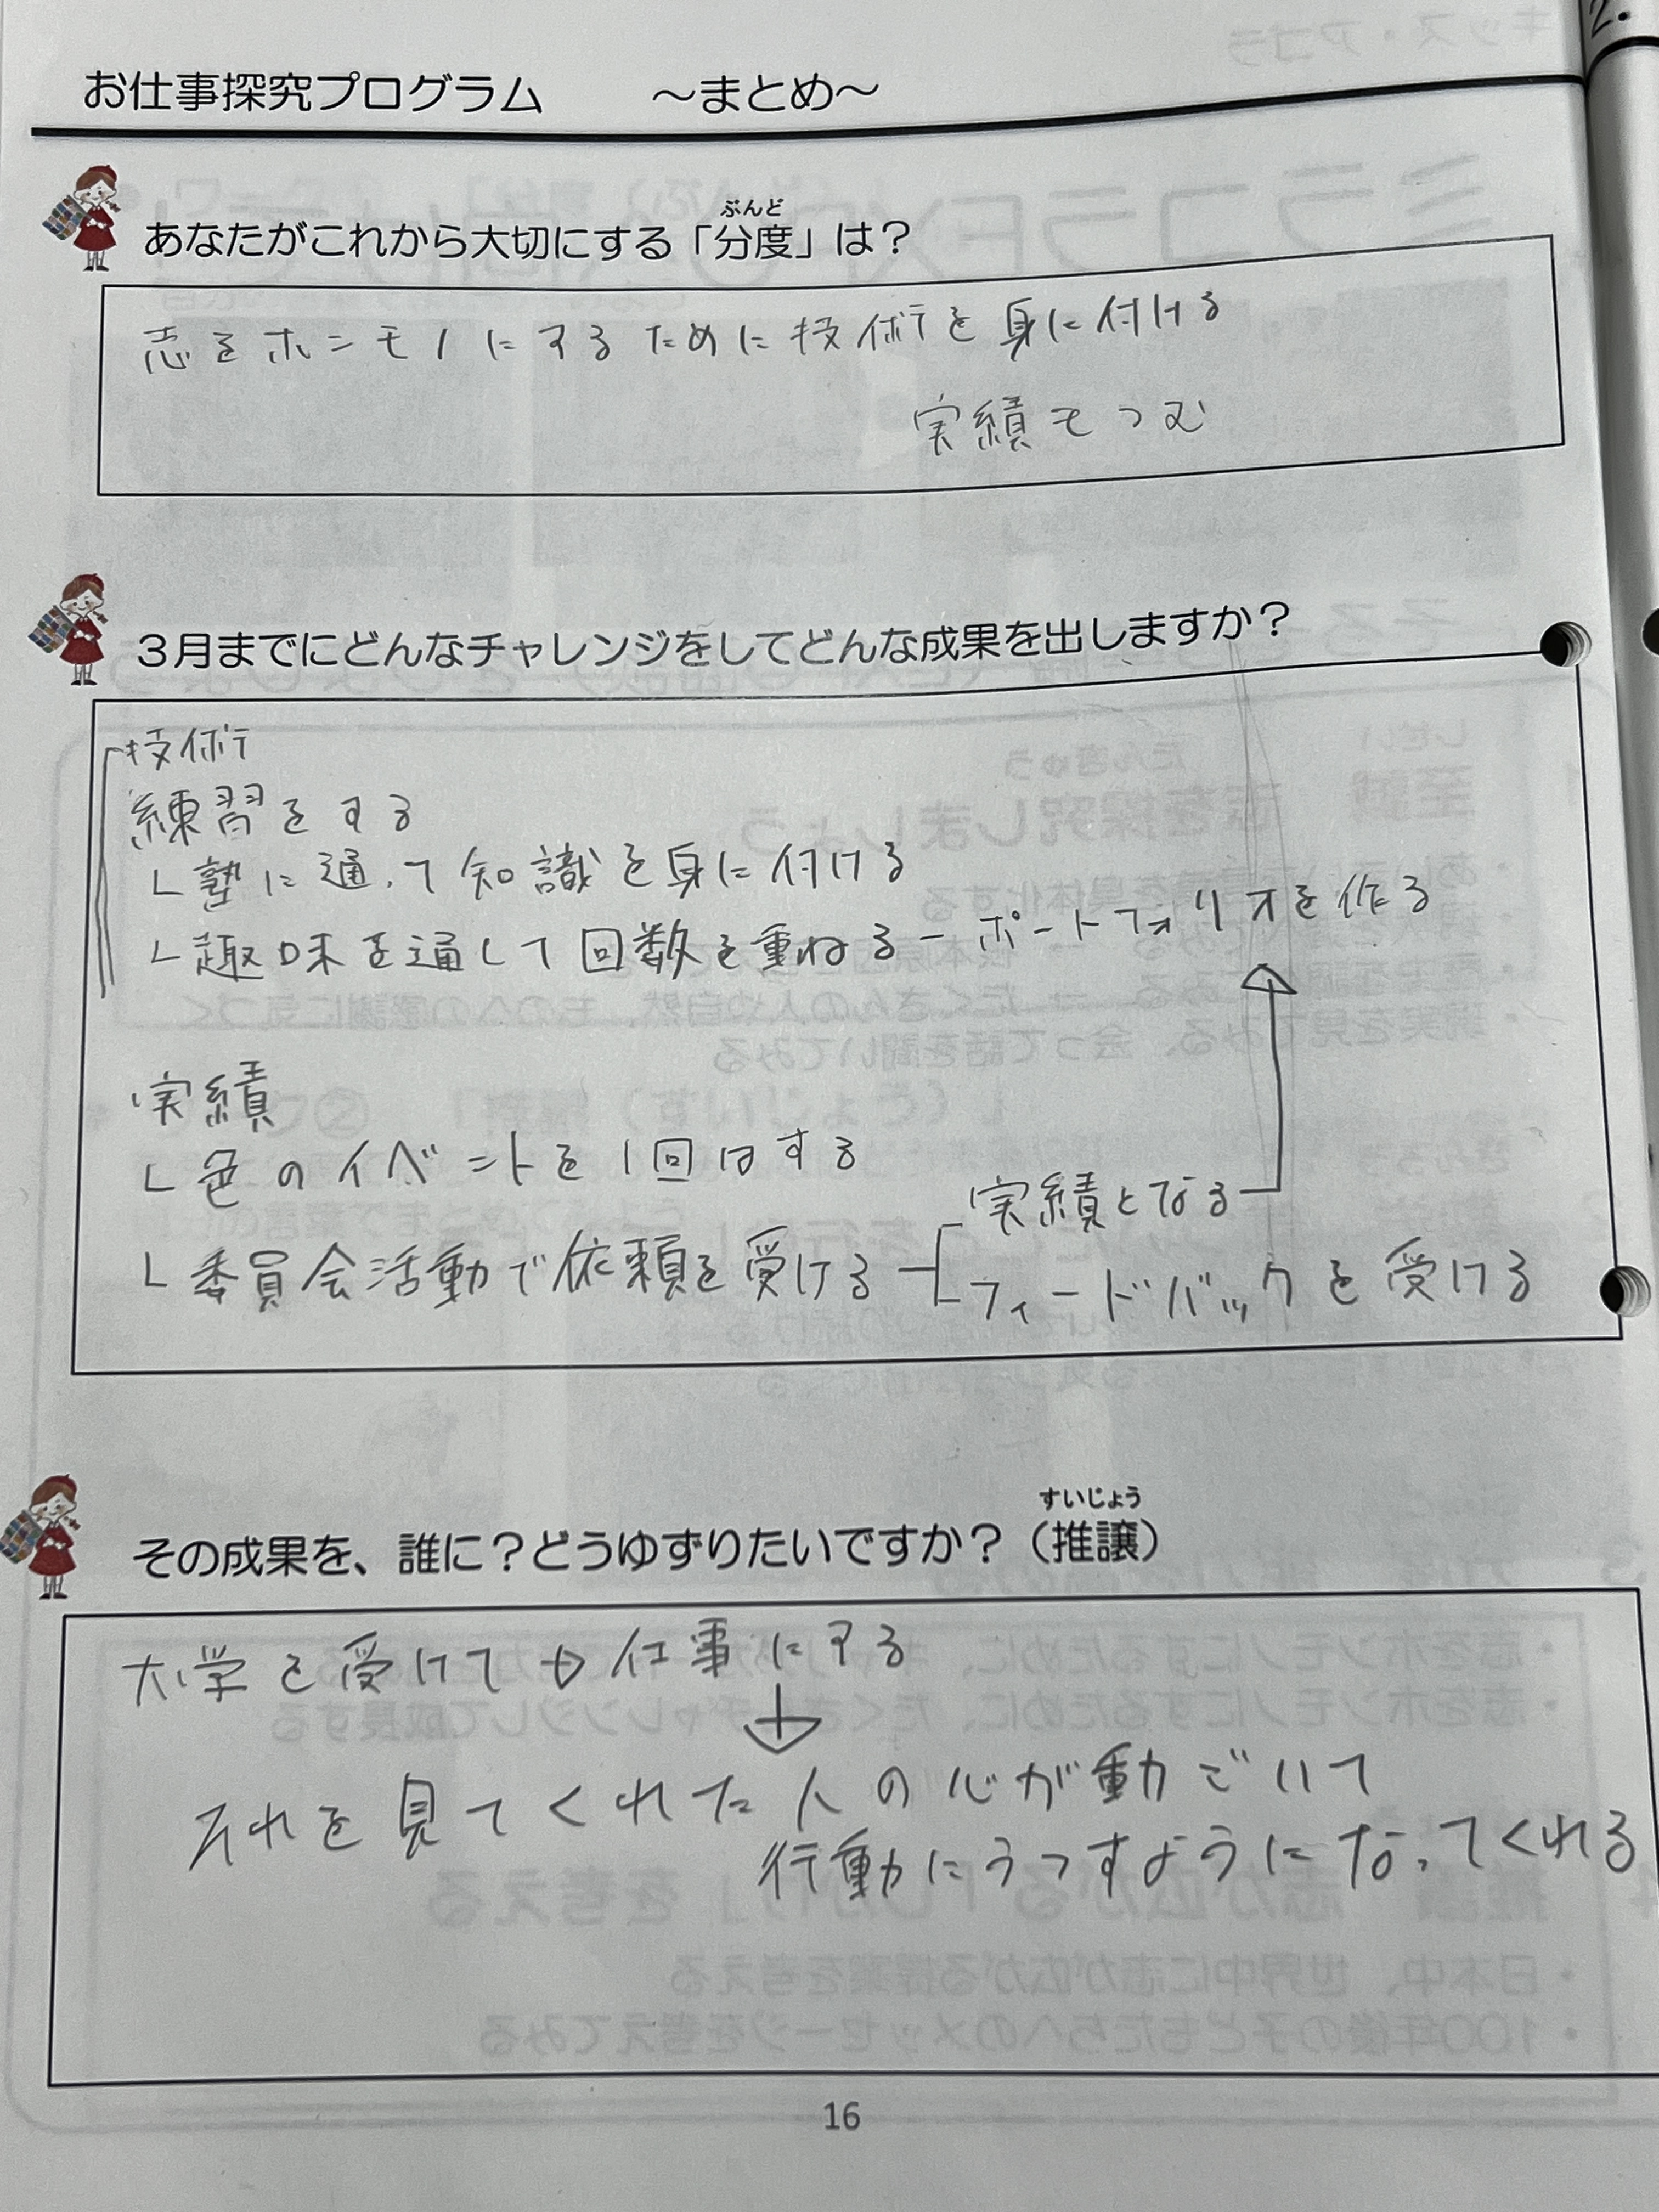 お仕事探究プログラム ～まとめ～
ぶんど
あなたがこれから大切にする「分度」は？
志をホンモノにするために技術を身に付ける
実績もつむ
３月までにどんなチャレンジをしてどんな成果を出しますか？
技術
練習をする
└塾に通って知識を身に付ける
└趣味を通して回数を重ねる－ポートフォリオを作る
実績
└色のイベントを1回はする
実績となる
└委員会活動で依頼を受ける
フィードバックを受ける
すいじょう
その成果を、誰に？どうゆずりたいですか？（推譲）
大学を受けて→仕事にする
↓
それを見てくれた人の心が動ごいて
行動にうつすようになってくれる
16